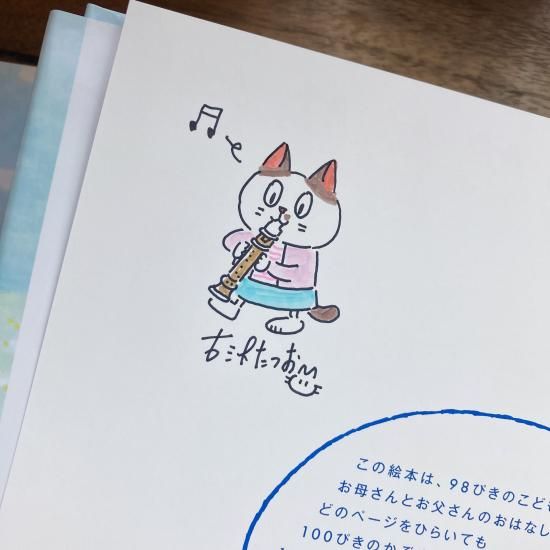 古沢たつお
この絵本は、98ぴきのこども
お母さんとお父さんのおはなし
どのページをひらいても
100ぴきのかぞ